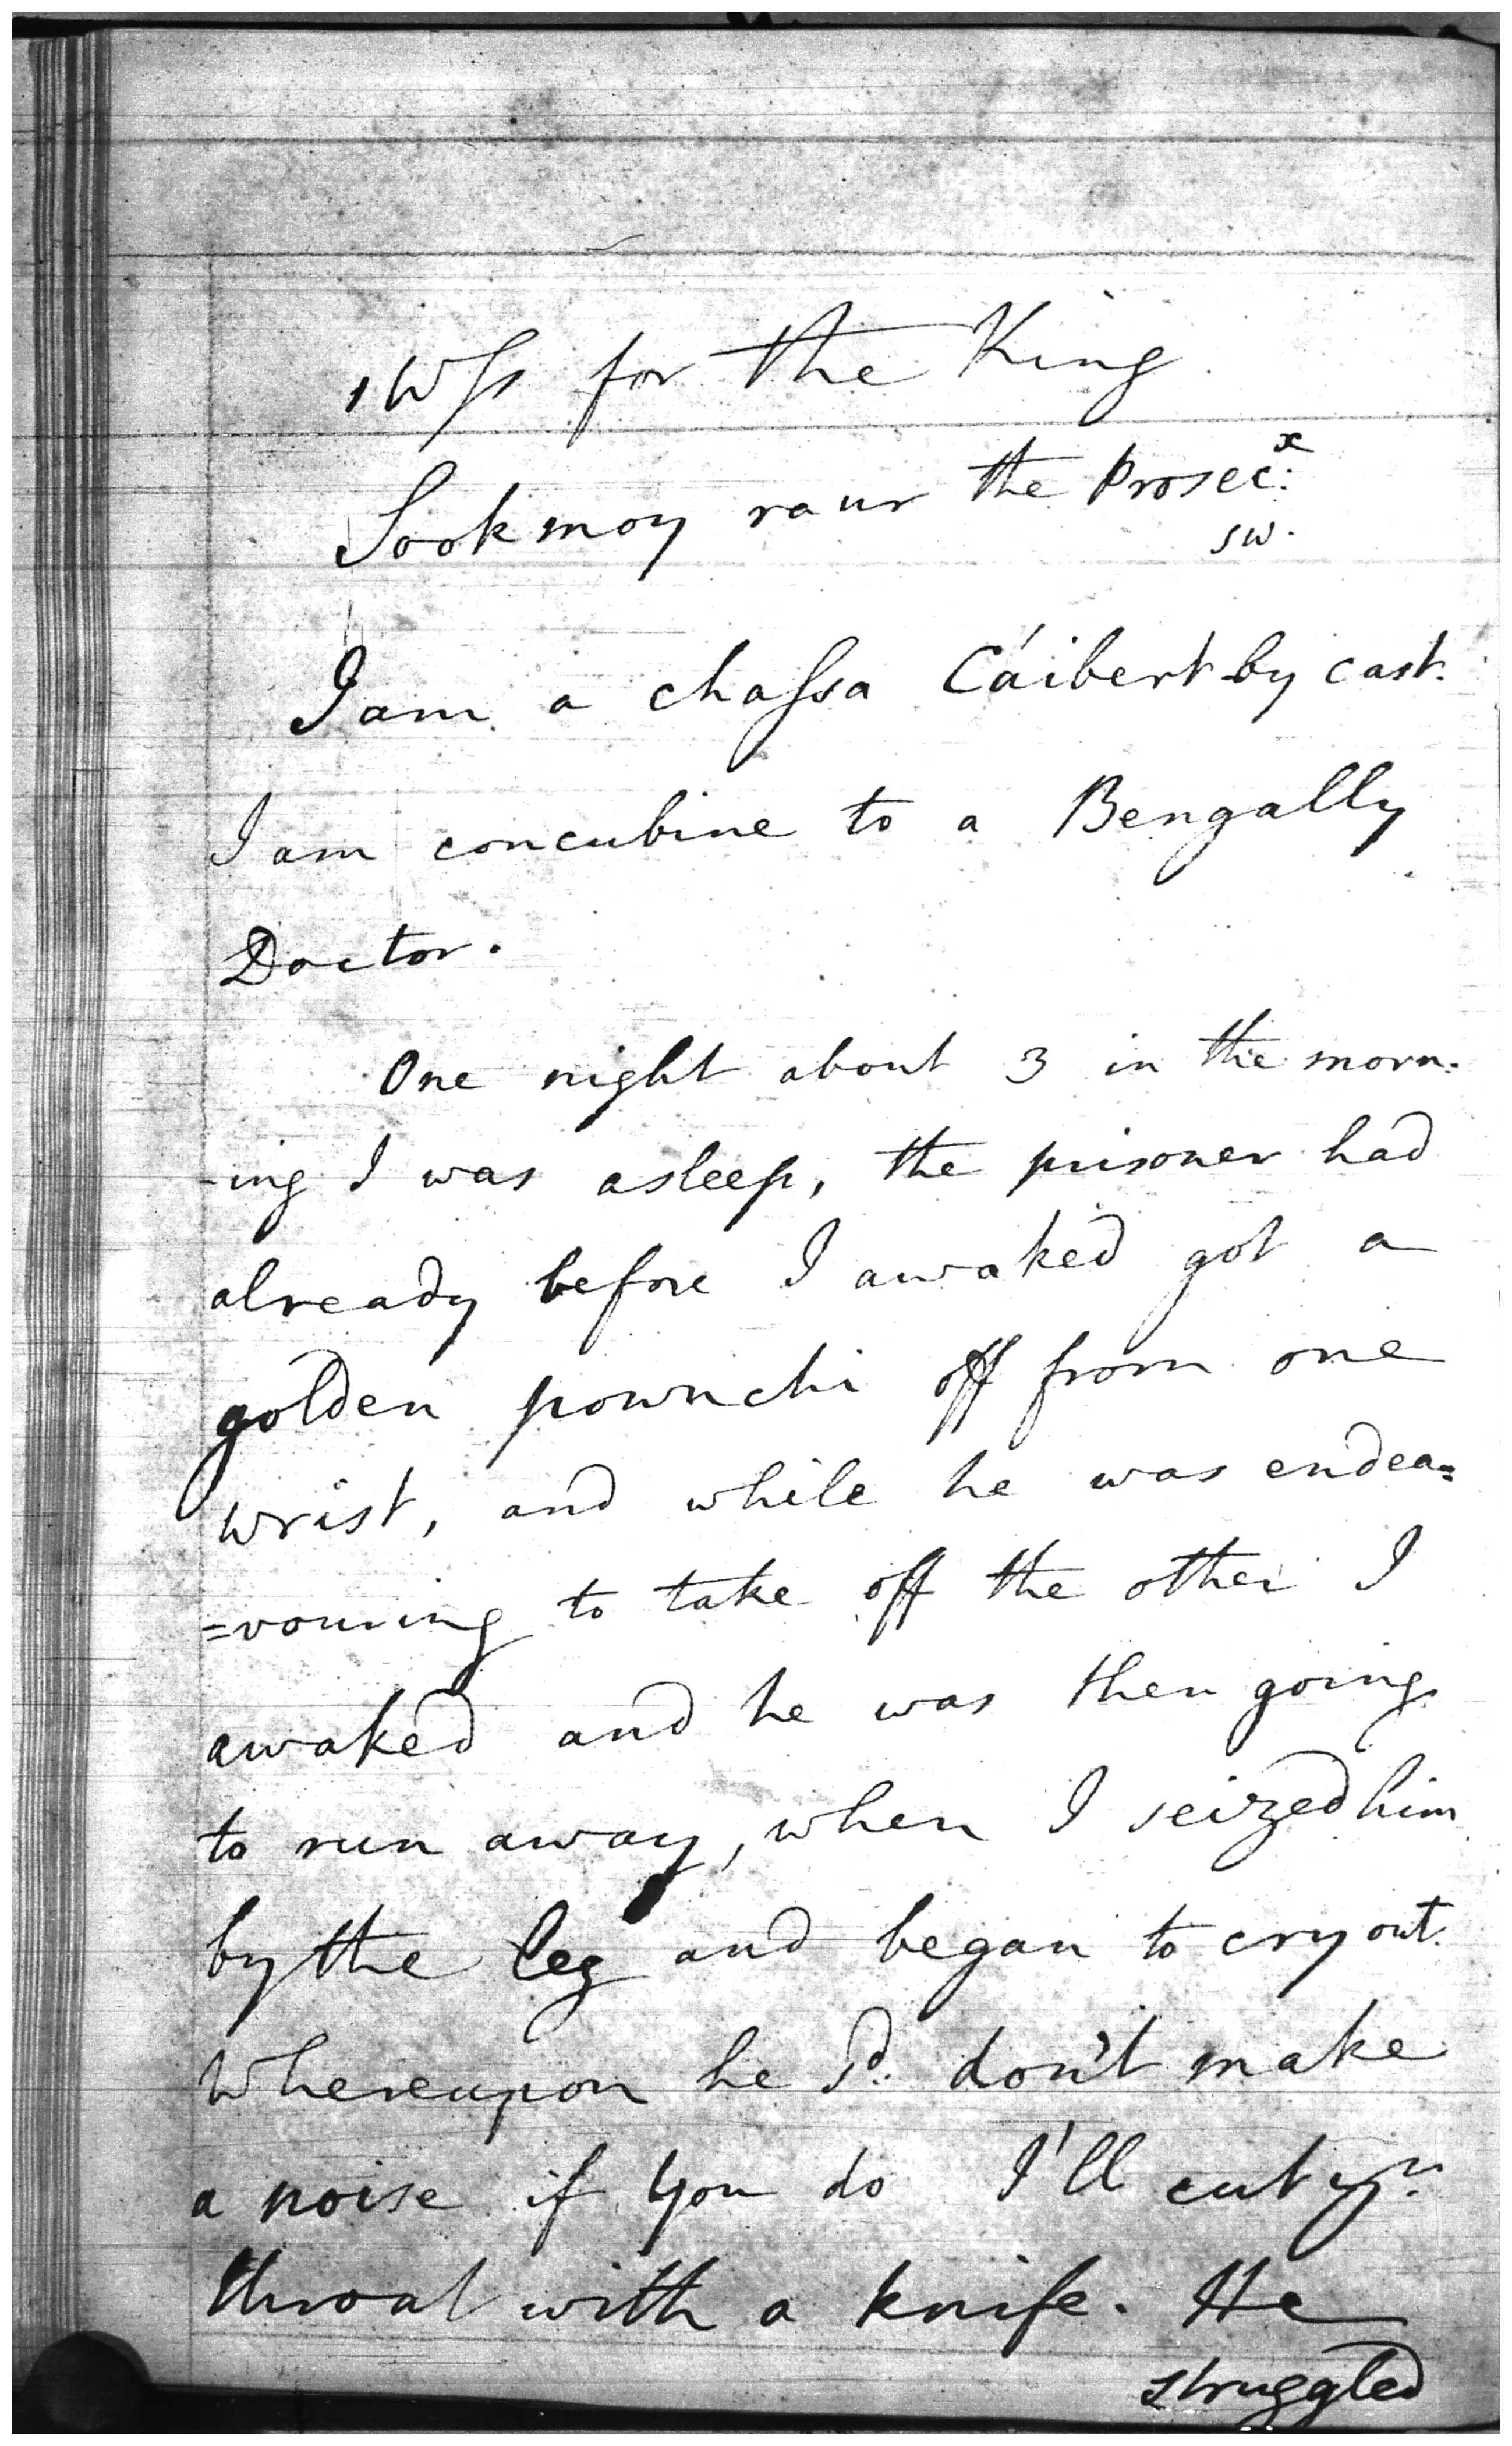 1 Wss for the King
Sookmoy raur the Prosec:x
sw.
I am a chassa Cáibert by cast.
I am concubine to a Bengally
Doctor.
One night about 3 in the morn:
-ing I was asleep, the prisoner had
already before I awaked got a
golden pownchi off from one
wrist, and while he was endea=
=vouring to take off the other I
awaked and he was then going
to run away, when I seized him
by the leg and began to cry out.
Whereupon he sd. don't make
a noise if you do I'll cut yr.
throat with a knife. He
struggled